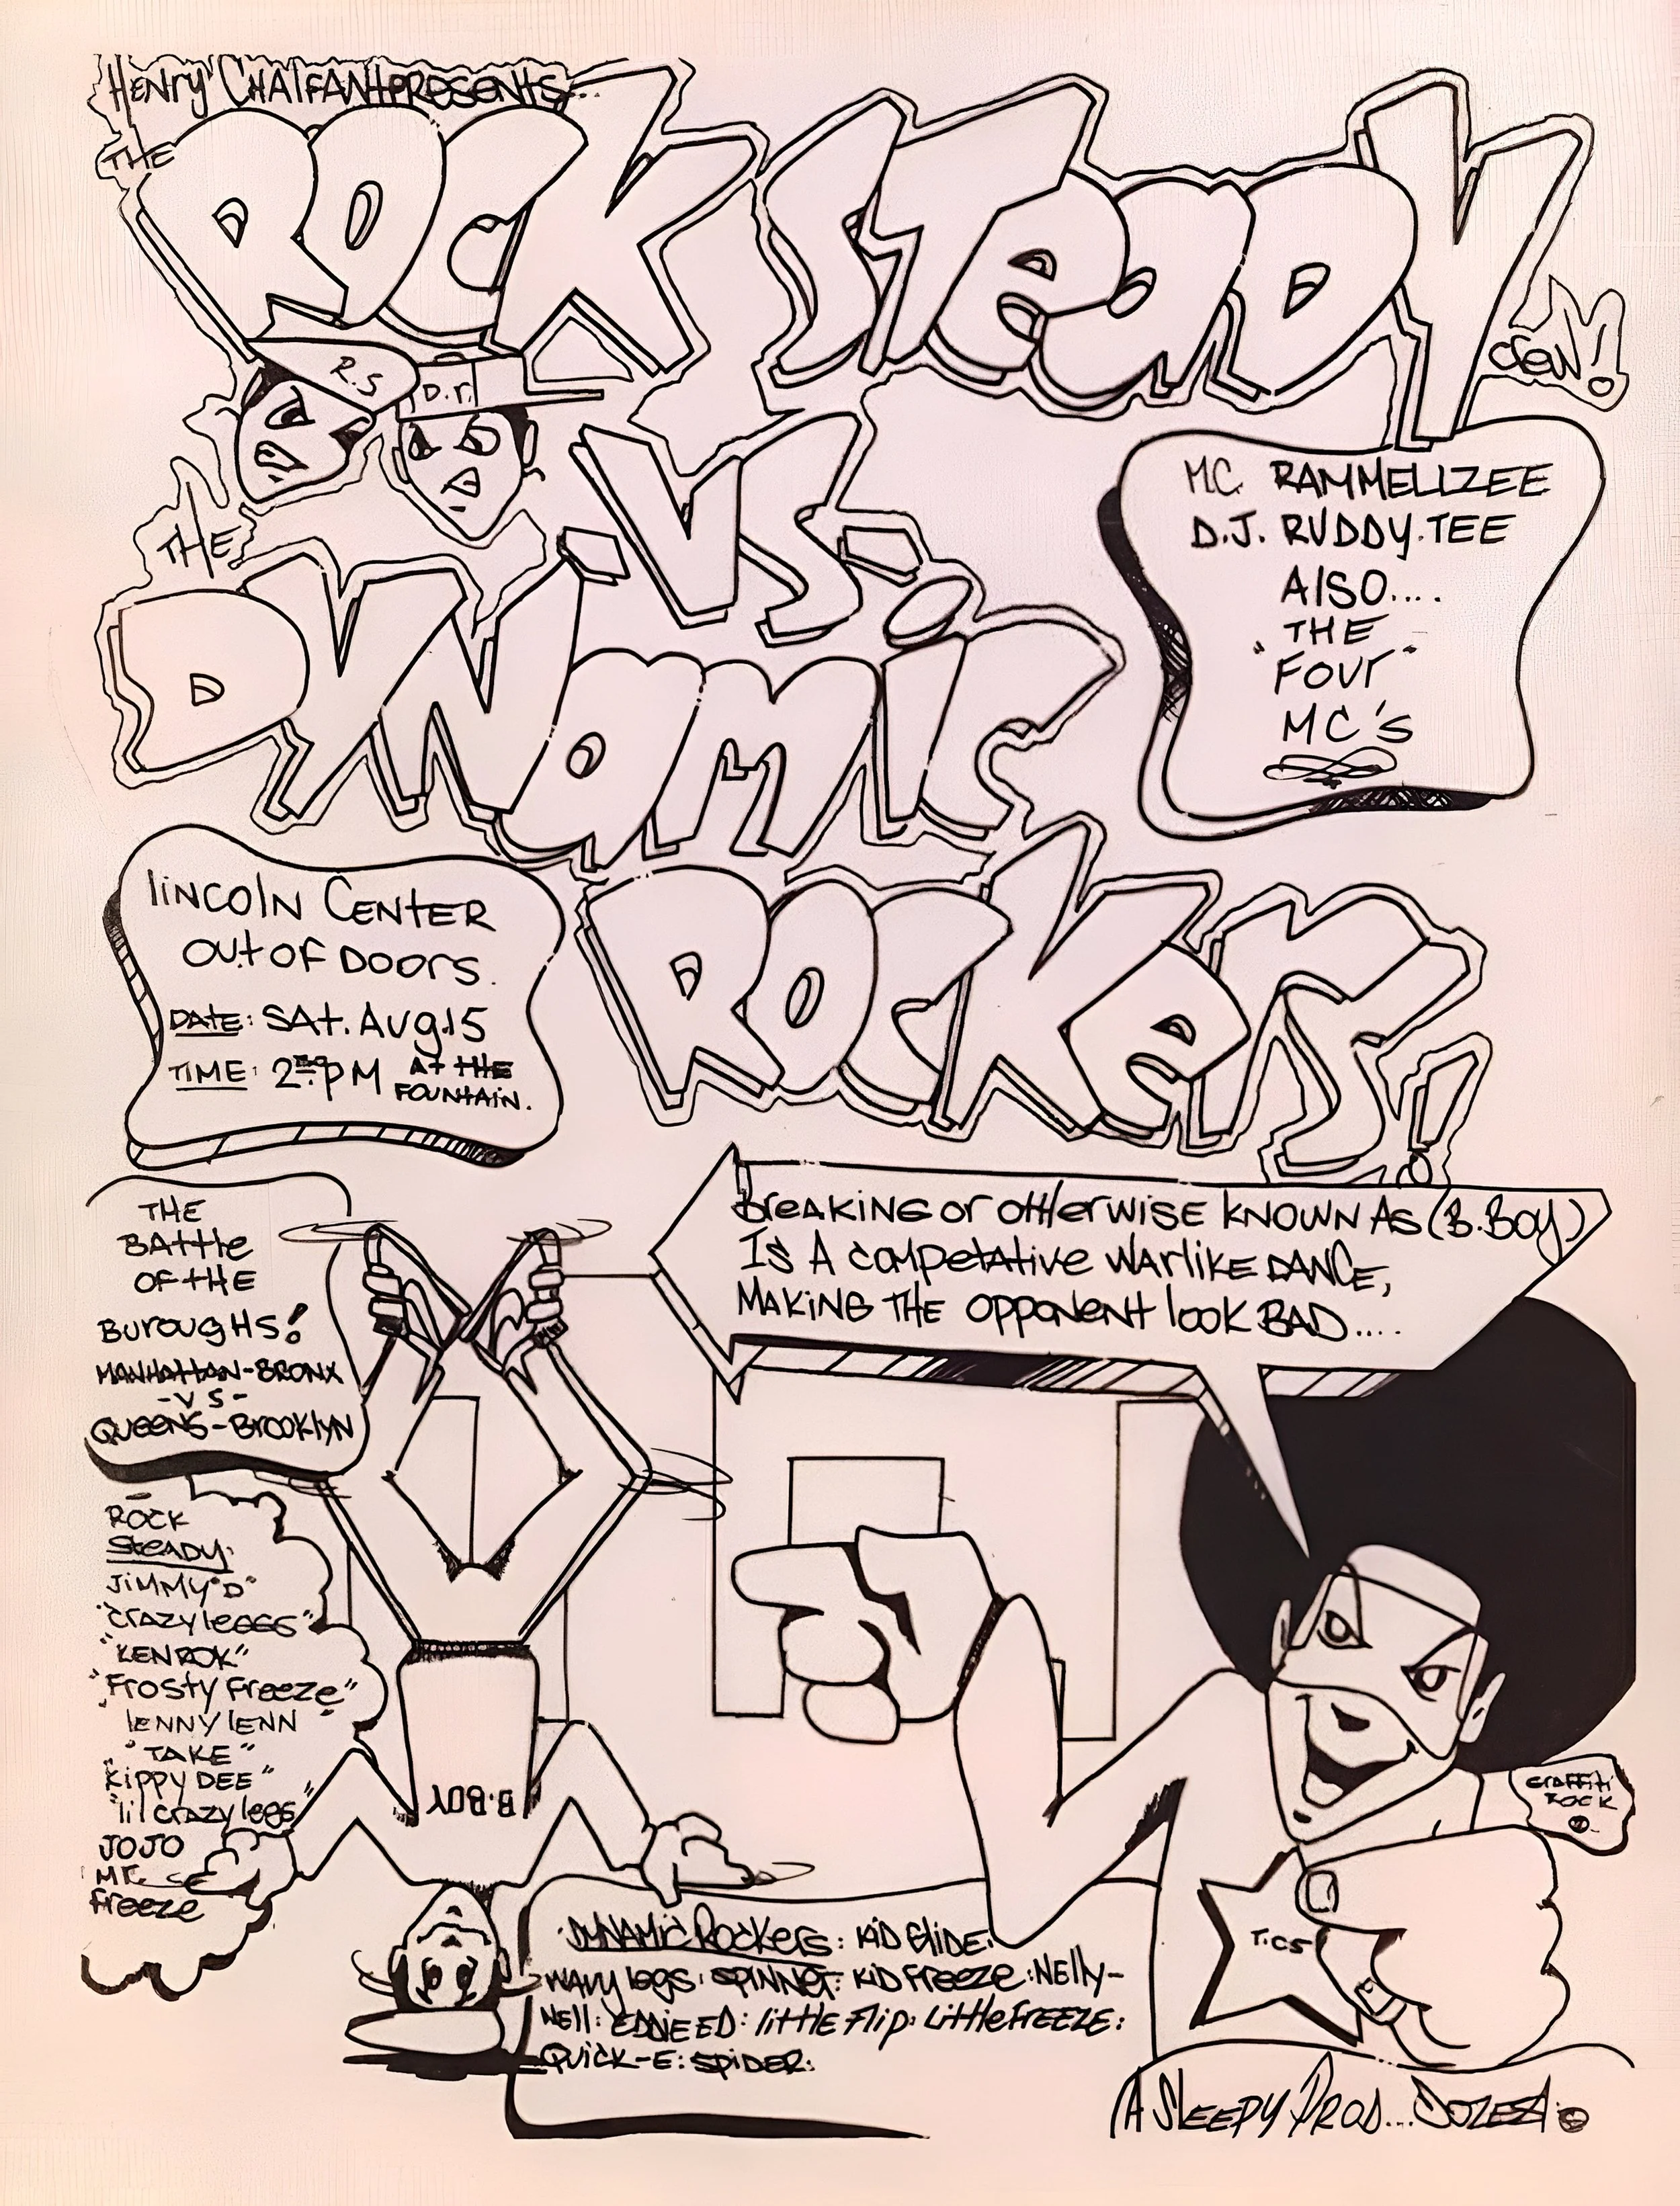 HENRY CHALFANT PRESENTS...
THE
ROCK STEADY
CREW!
R.S
D.r.
.VS.
THE
DYNAMIC
ROCKERS!
M.C. RAMMELLZEE
D.J. RUDDY.TEE
AlSO....
THE
"FOUr"
MC'S
lINCOlN CENTER
OUT OF DOORS.
DATE: SAT. AUG.15
TIME: 2:00 PM AT THE
FOUNTAIN.
THE
BATTle
OF THE
BUrOUgHS!
MANHATTAN-BRONX
-VS-
QUEENS-BROOKlYN
BreAKING Or OTHerWISE KNOWN AS (B.BOY)
IS A COMPETATIVE WArlIKE DANCE,
MAKING THE OPPONENT lOOK BAD....
ROCK
STEADY:
JIMMY "D"
"CRAZY leGGS"
"KEN ROK"
"FrOSTY Freeze"
lENNY lENN
"TAKE"
KIPPY DEE"
"lil CRAZY legs"
JOJO
Mr.
Freeze
B-BOY
GRAFFITI
ROCK
T.C5
DYNAMIC ROCKERS: KID GlIDE:
WAVY legs: SPINNER: KID Freeze: NEllY-
NEll: EDDIE ED: lITTlE FlIP: LITTlE FREEZE:
QUICK-E: SPIDER:
A SLEEPY PROD... DOZE